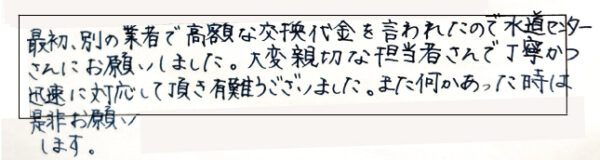 最初、別の業者で高額な交換代金を言われたので水道センター
さんにお願いしました。大変親切な担当者さんで丁寧かつ
迅速に対応して頂き有難うございました。また何かあった時は
是非お願い
します。